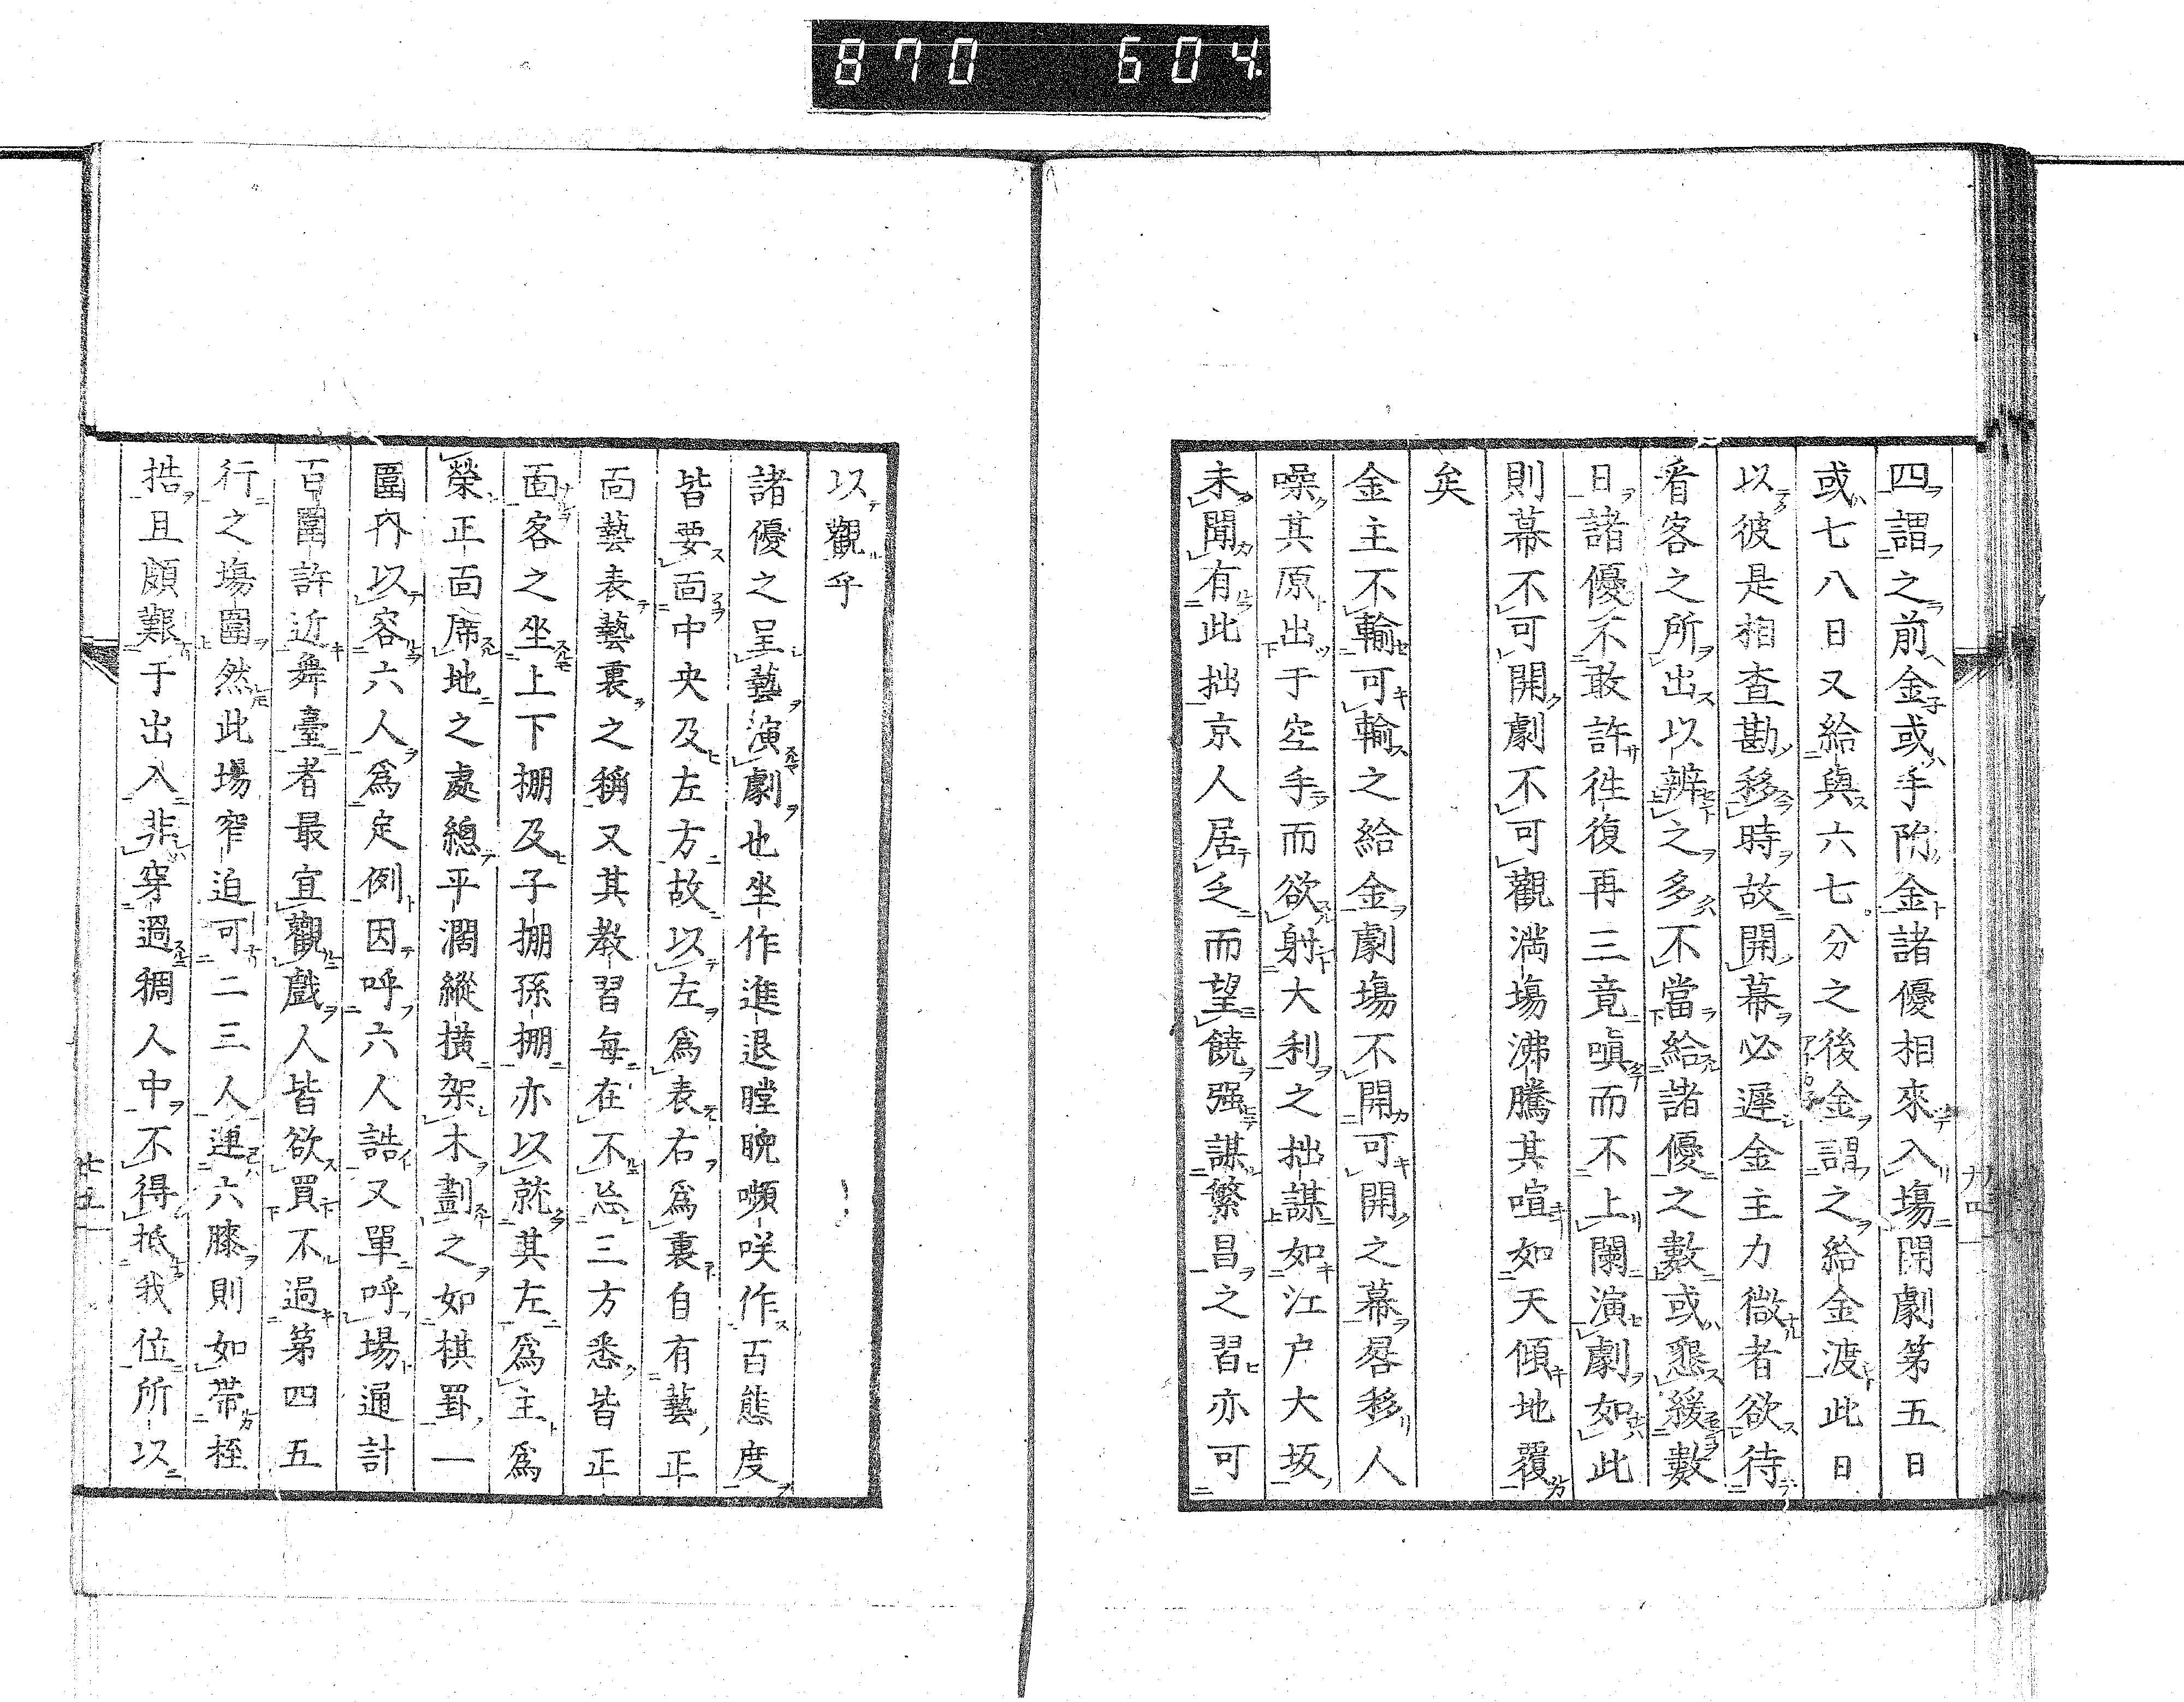 870 604
四謂之前金或手附金諸優相來入場開劇第五日
或七八日又給與六七分之後金謂之給金渡此日
以彼是相査勘移時故開幕必遲金主力微者欲待
看客之所出以辨之多不當給諸優之數或懇緩數
日諸優不敢許徃復再三竟嗔而不上闌演劇如此
則幕不可開劇不可觀滿場沸騰其喧如天傾地覆
矣
金主不輸可輸之給金劇場不開可開之幕晷移人
噪其原出于空手而欲射大利之拙謀如江户大坂
未聞有此拙京人居乏而望饒强謀繁昌之習亦可
廿四
以觀乎
諸優之呈藝演劇也坐作進退瞠睕嚬咲作百態度
皆要面中央及左方故以左爲表右爲裏自有藝正
面藝表藝裏之稱又其教習毎在不忘三方悉皆正
面客之坐上下棚及子棚孫棚亦以就其左爲主爲
榮正面席地之處總平濶縱橫架木劃之如棋罫一
圍内以容六人爲定例因呼六人詰又單呼場通計
百圍許近舞臺者最宜觀戲人皆欲買不過第四五
行之場圍然此場窄迫可二三人連六膝則如帶桎
梏且頗艱于出入非穿過稠人中不得抵我位所以
廿五